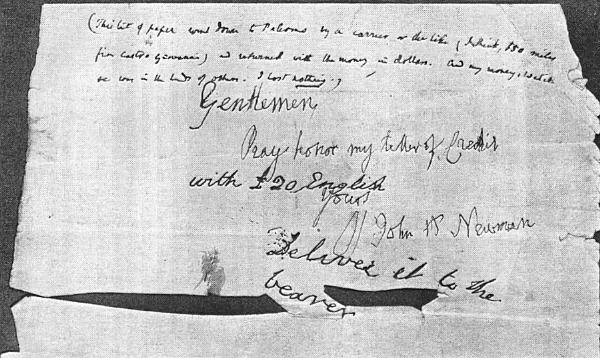 (This bit of paper went down to Palermo by a carrier or the like (I think, 150 miles
from Castro Giovanni) and returned with the money in dollars. And my money, watch
&c were in the hands of others. I lost nothing.)
Gentlemen
Pray honor my letter of Credit
with £20 English
Yours
John H Newman
Deliver it to the
bearer